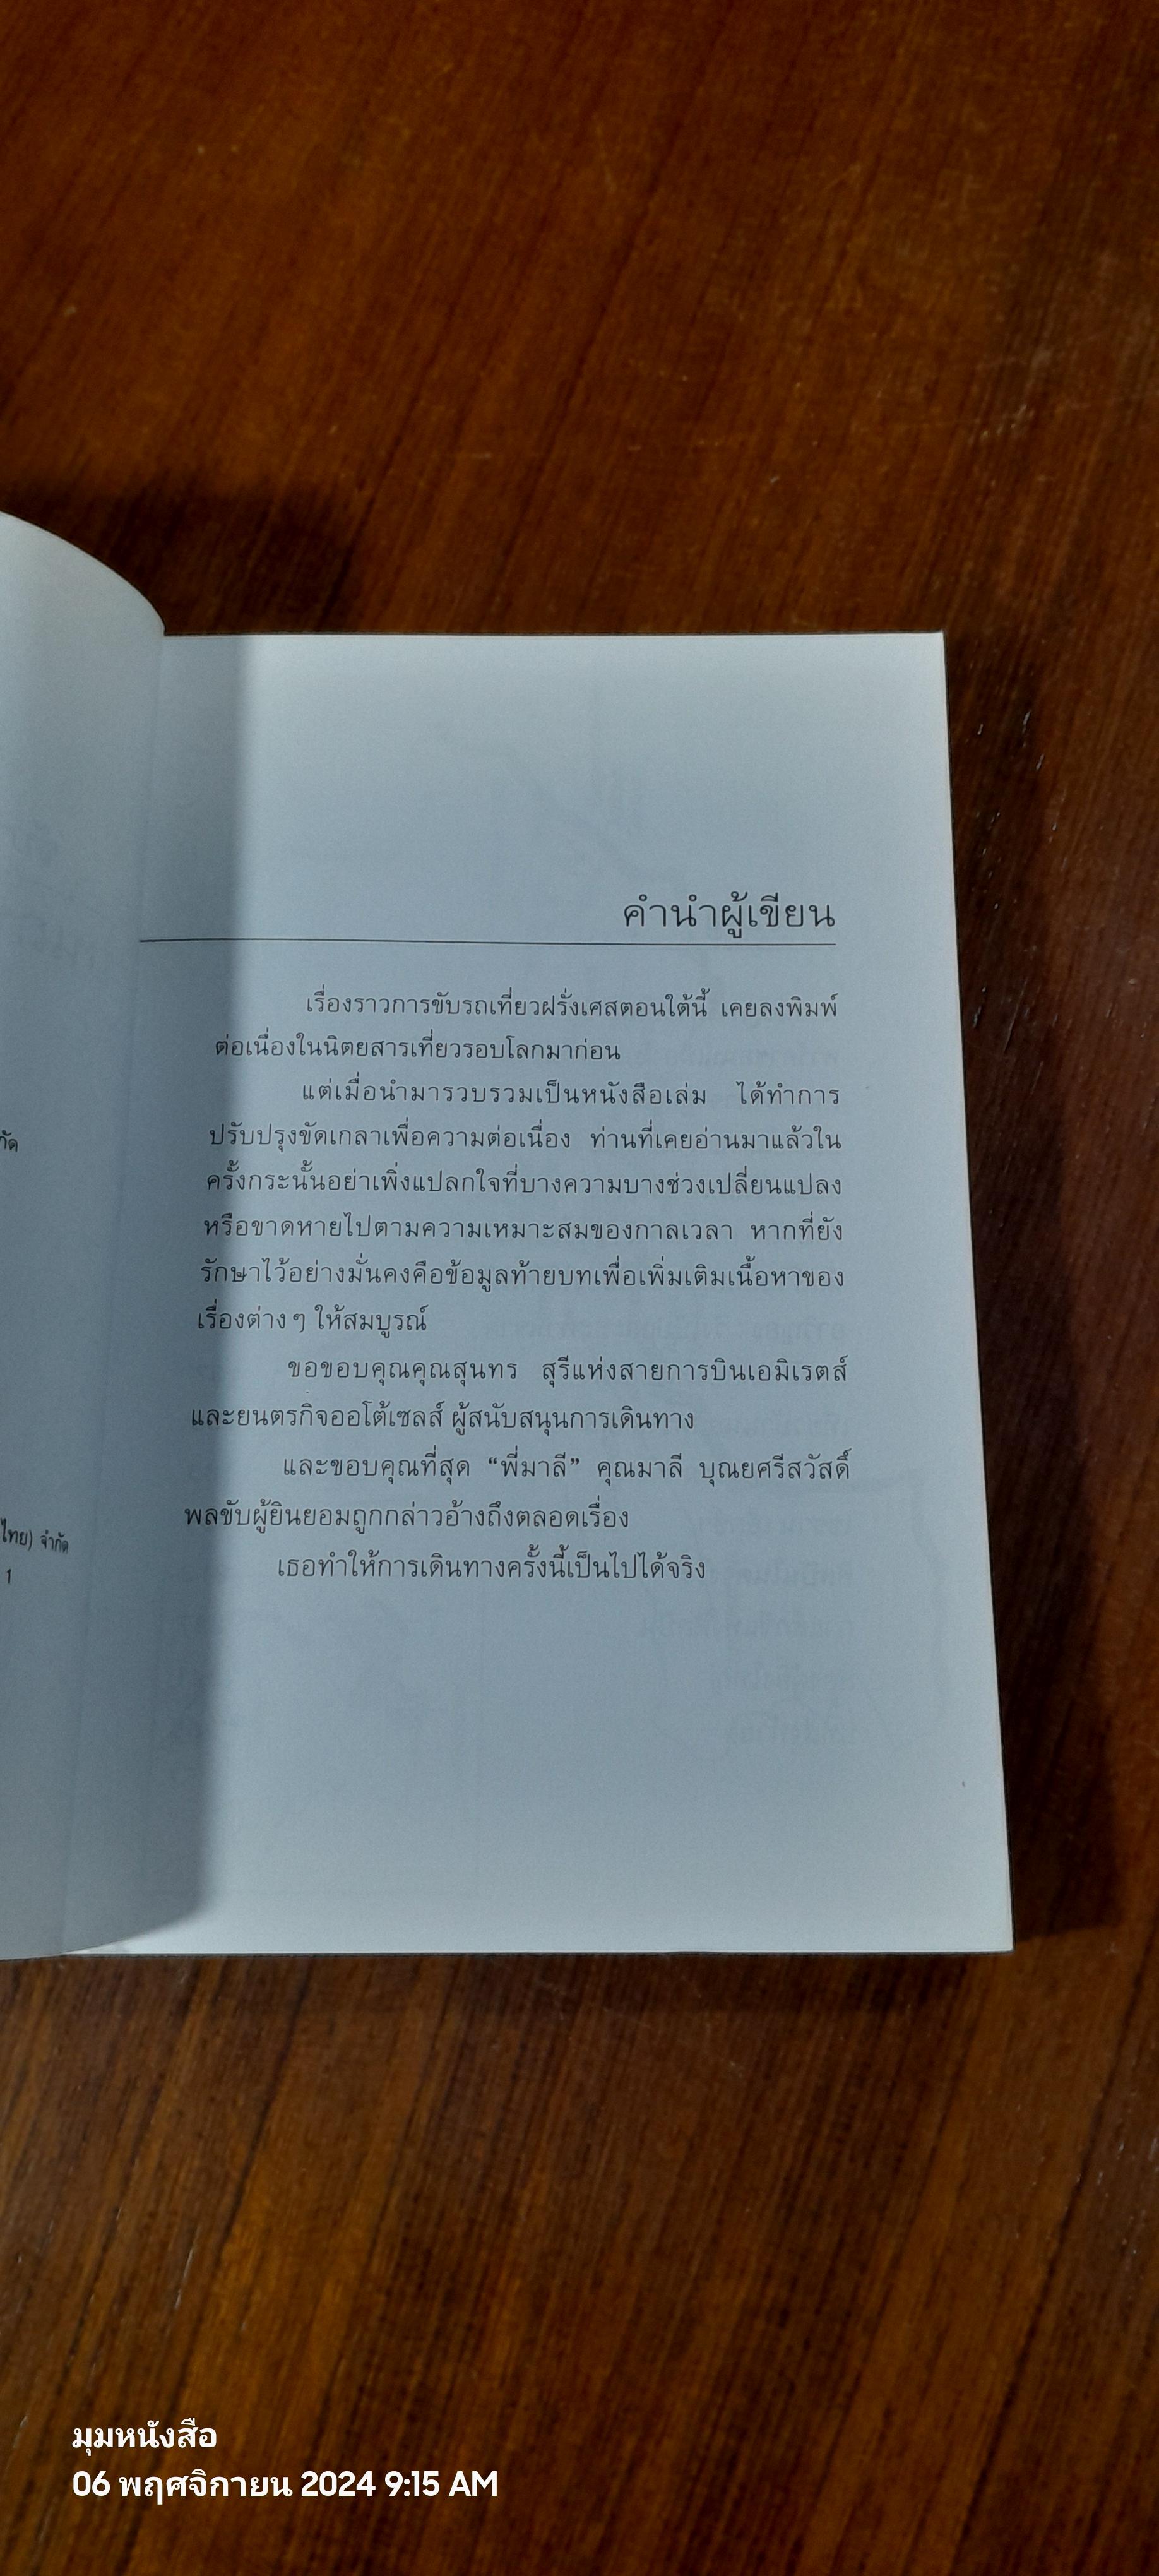 คำนำผู้เขียน
เรื่องราวการขับรถเที่ยวฝรั่งเศสตอนใต้นี้ เคยลงพิมพ์
ต่อเนื่องในนิตยสารเที่ยวรอบโลกมาก่อน
แต่เมื่อนำมารวบรวมเป็นหนังสือเล่ม ได้ทำการ
ปรับปรุงขัดเกลาเพื่อความต่อเนื่อง ท่านที่เคยอ่านมาแล้วใน
ครั้งกระนั้นอย่าเพิ่งแปลกใจที่บางความบางช่วงเปลี่ยนแปลง
หรือขาดหายไปตามความเหมาะสมของกาลเวลา หากที่ยัง
รักษาไว้อย่างมั่นคงคือข้อมูลท้ายบทเพื่อเพิ่มเติมเนื้อหาของ
เรื่องต่างๆ ให้สมบูรณ์
ขอขอบคุณคุณสุนทร สุรีแห่งสายการบินเอมิเรตส์
และยนตรกิจออโต้เซลส์ ผู้สนับสนุนการเดินทาง
และขอบคุณที่สุด “พี่มาลี” คุณมาลี บุณยศรีสวัสดิ์
พลขับผู้ยินยอมถูกกล่าวอ้างถึงตลอดเรื่อง
เธอทำให้การเดินทางครั้งนี้เป็นไปได้จริง
ไทย) จำกัด
1
มุมหนังสือ
06 พฤศจิกายน 2024 9:15 AM